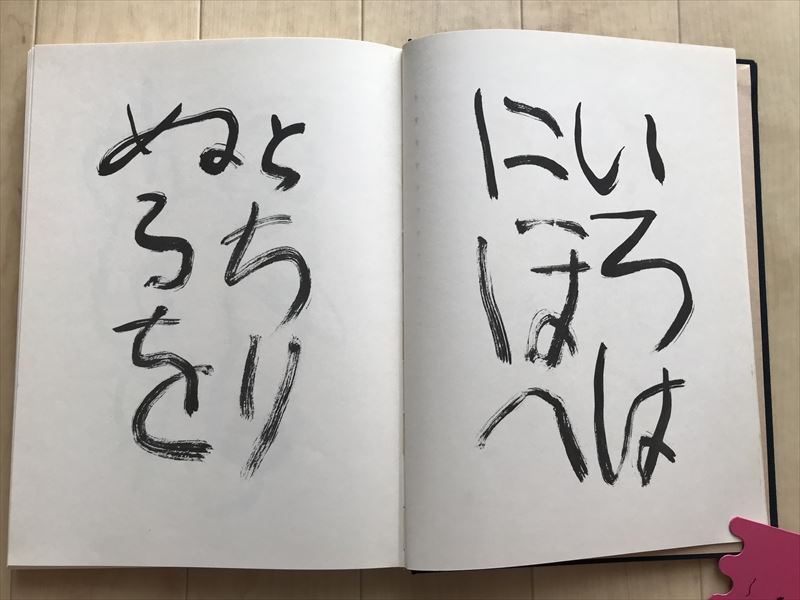 いろは
にほへ
とちり
ぬるを